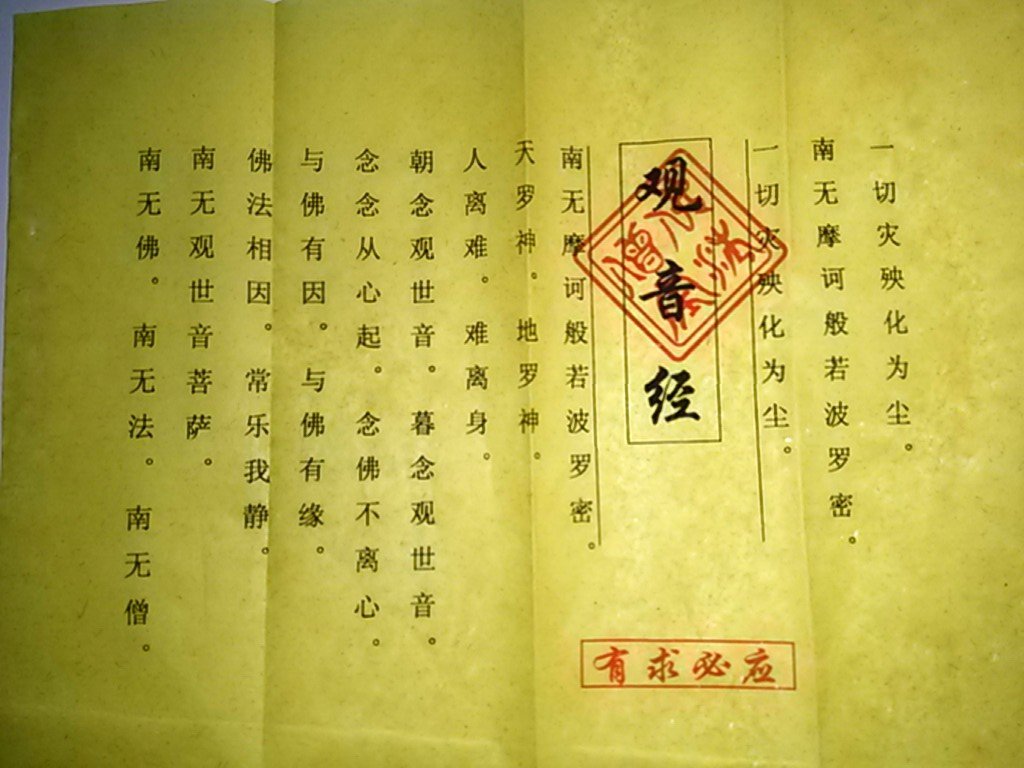 一切灾殃化为尘。
南无摩诃般若波罗密。
一切灾殃化为尘。
观音经
南无摩诃般若波罗密。
天罗神。地罗神。
人离难。难离身。
朝念观世音。暮念观世音。
念念从心起。念佛不离心。
与佛有因。与佛有缘。
佛法相因。常乐我静。
南无观世音菩萨。
南无佛。南无法。南无僧。
有求必应